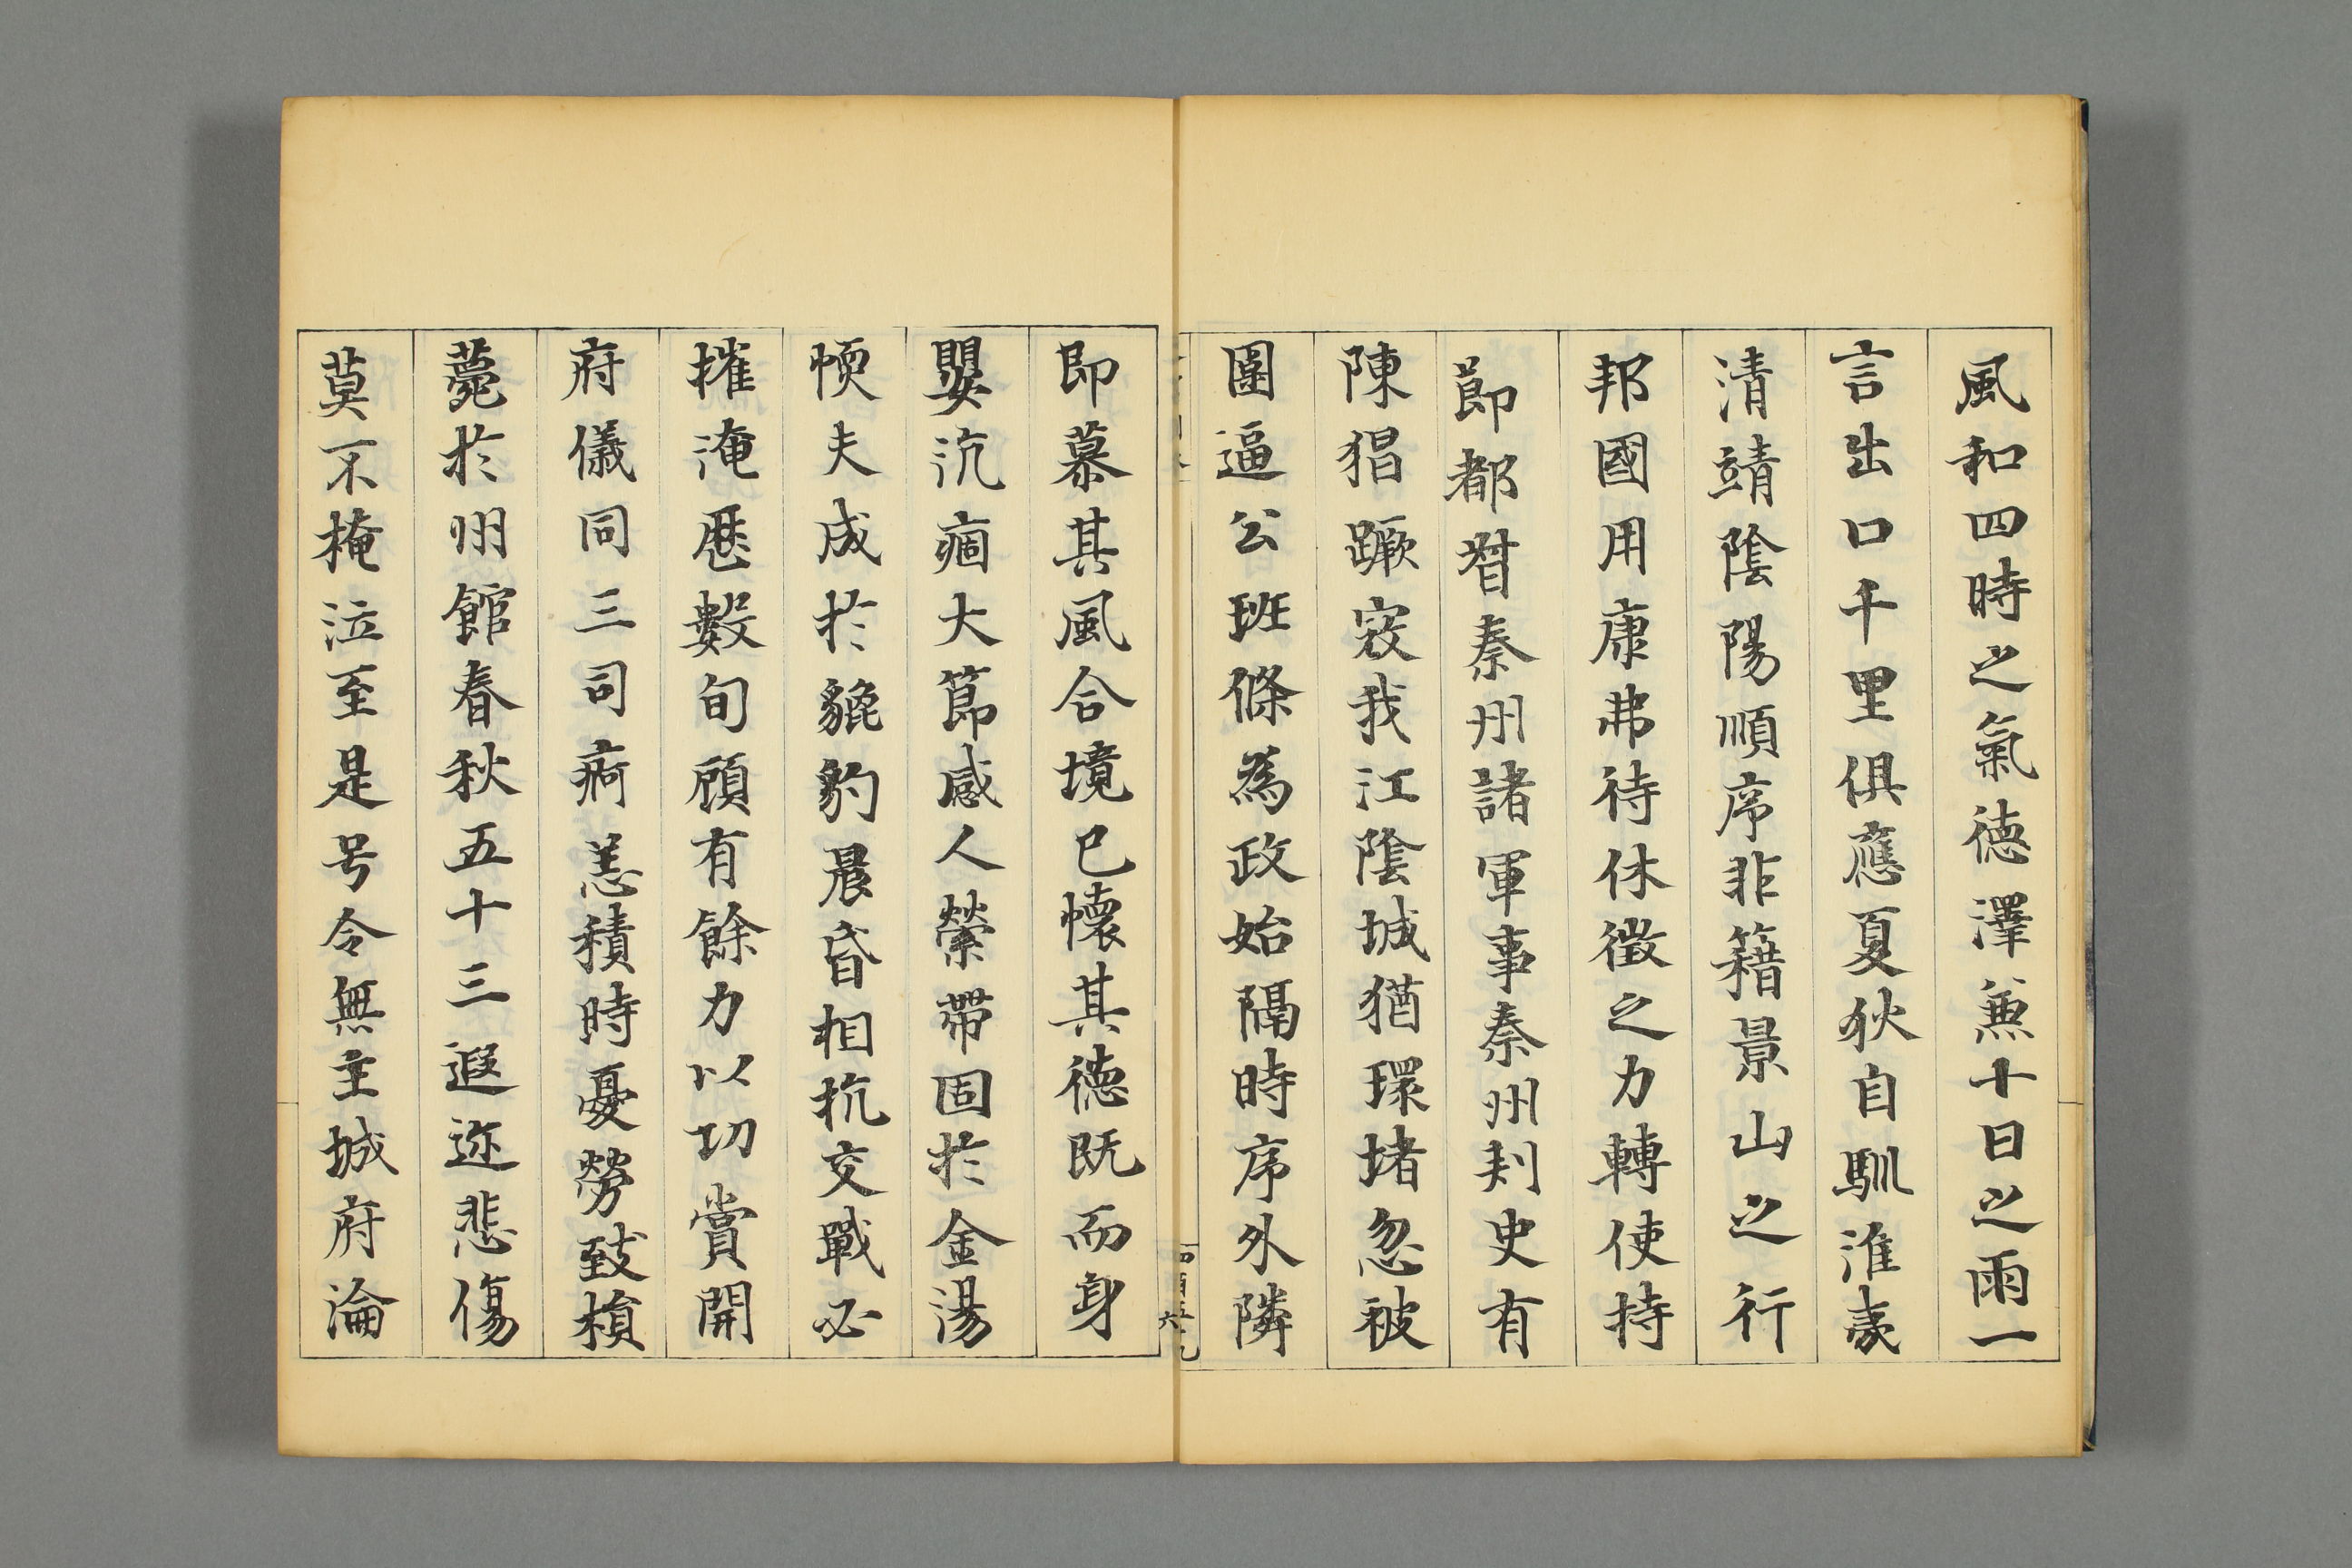 風和四時之氣德澤蕉十日之雨一
言出口千里俱應夏狄自馴淮豪
清靖陰陽順序非籍景山之行
邦國用康弗待休徵之力轉使持
節都督秦州諸軍事秦州刾史有
陳猖蹶寇我江陰城猶環堵忽被
圍逼公班條為政始隔時序外隣
即慕其風合境已懷其德既而身
嬰沉痼大節感人縈帶固於金湯
愞夫成於貔豹晨昏相抗交戰必
摧淹歷數旬頋有餘力以功賞開
府儀同三司痾恙積時憂勞致殞
薨於州館春秋五十三遐迩悲傷
莫不掩泣至是号令無主城府淪